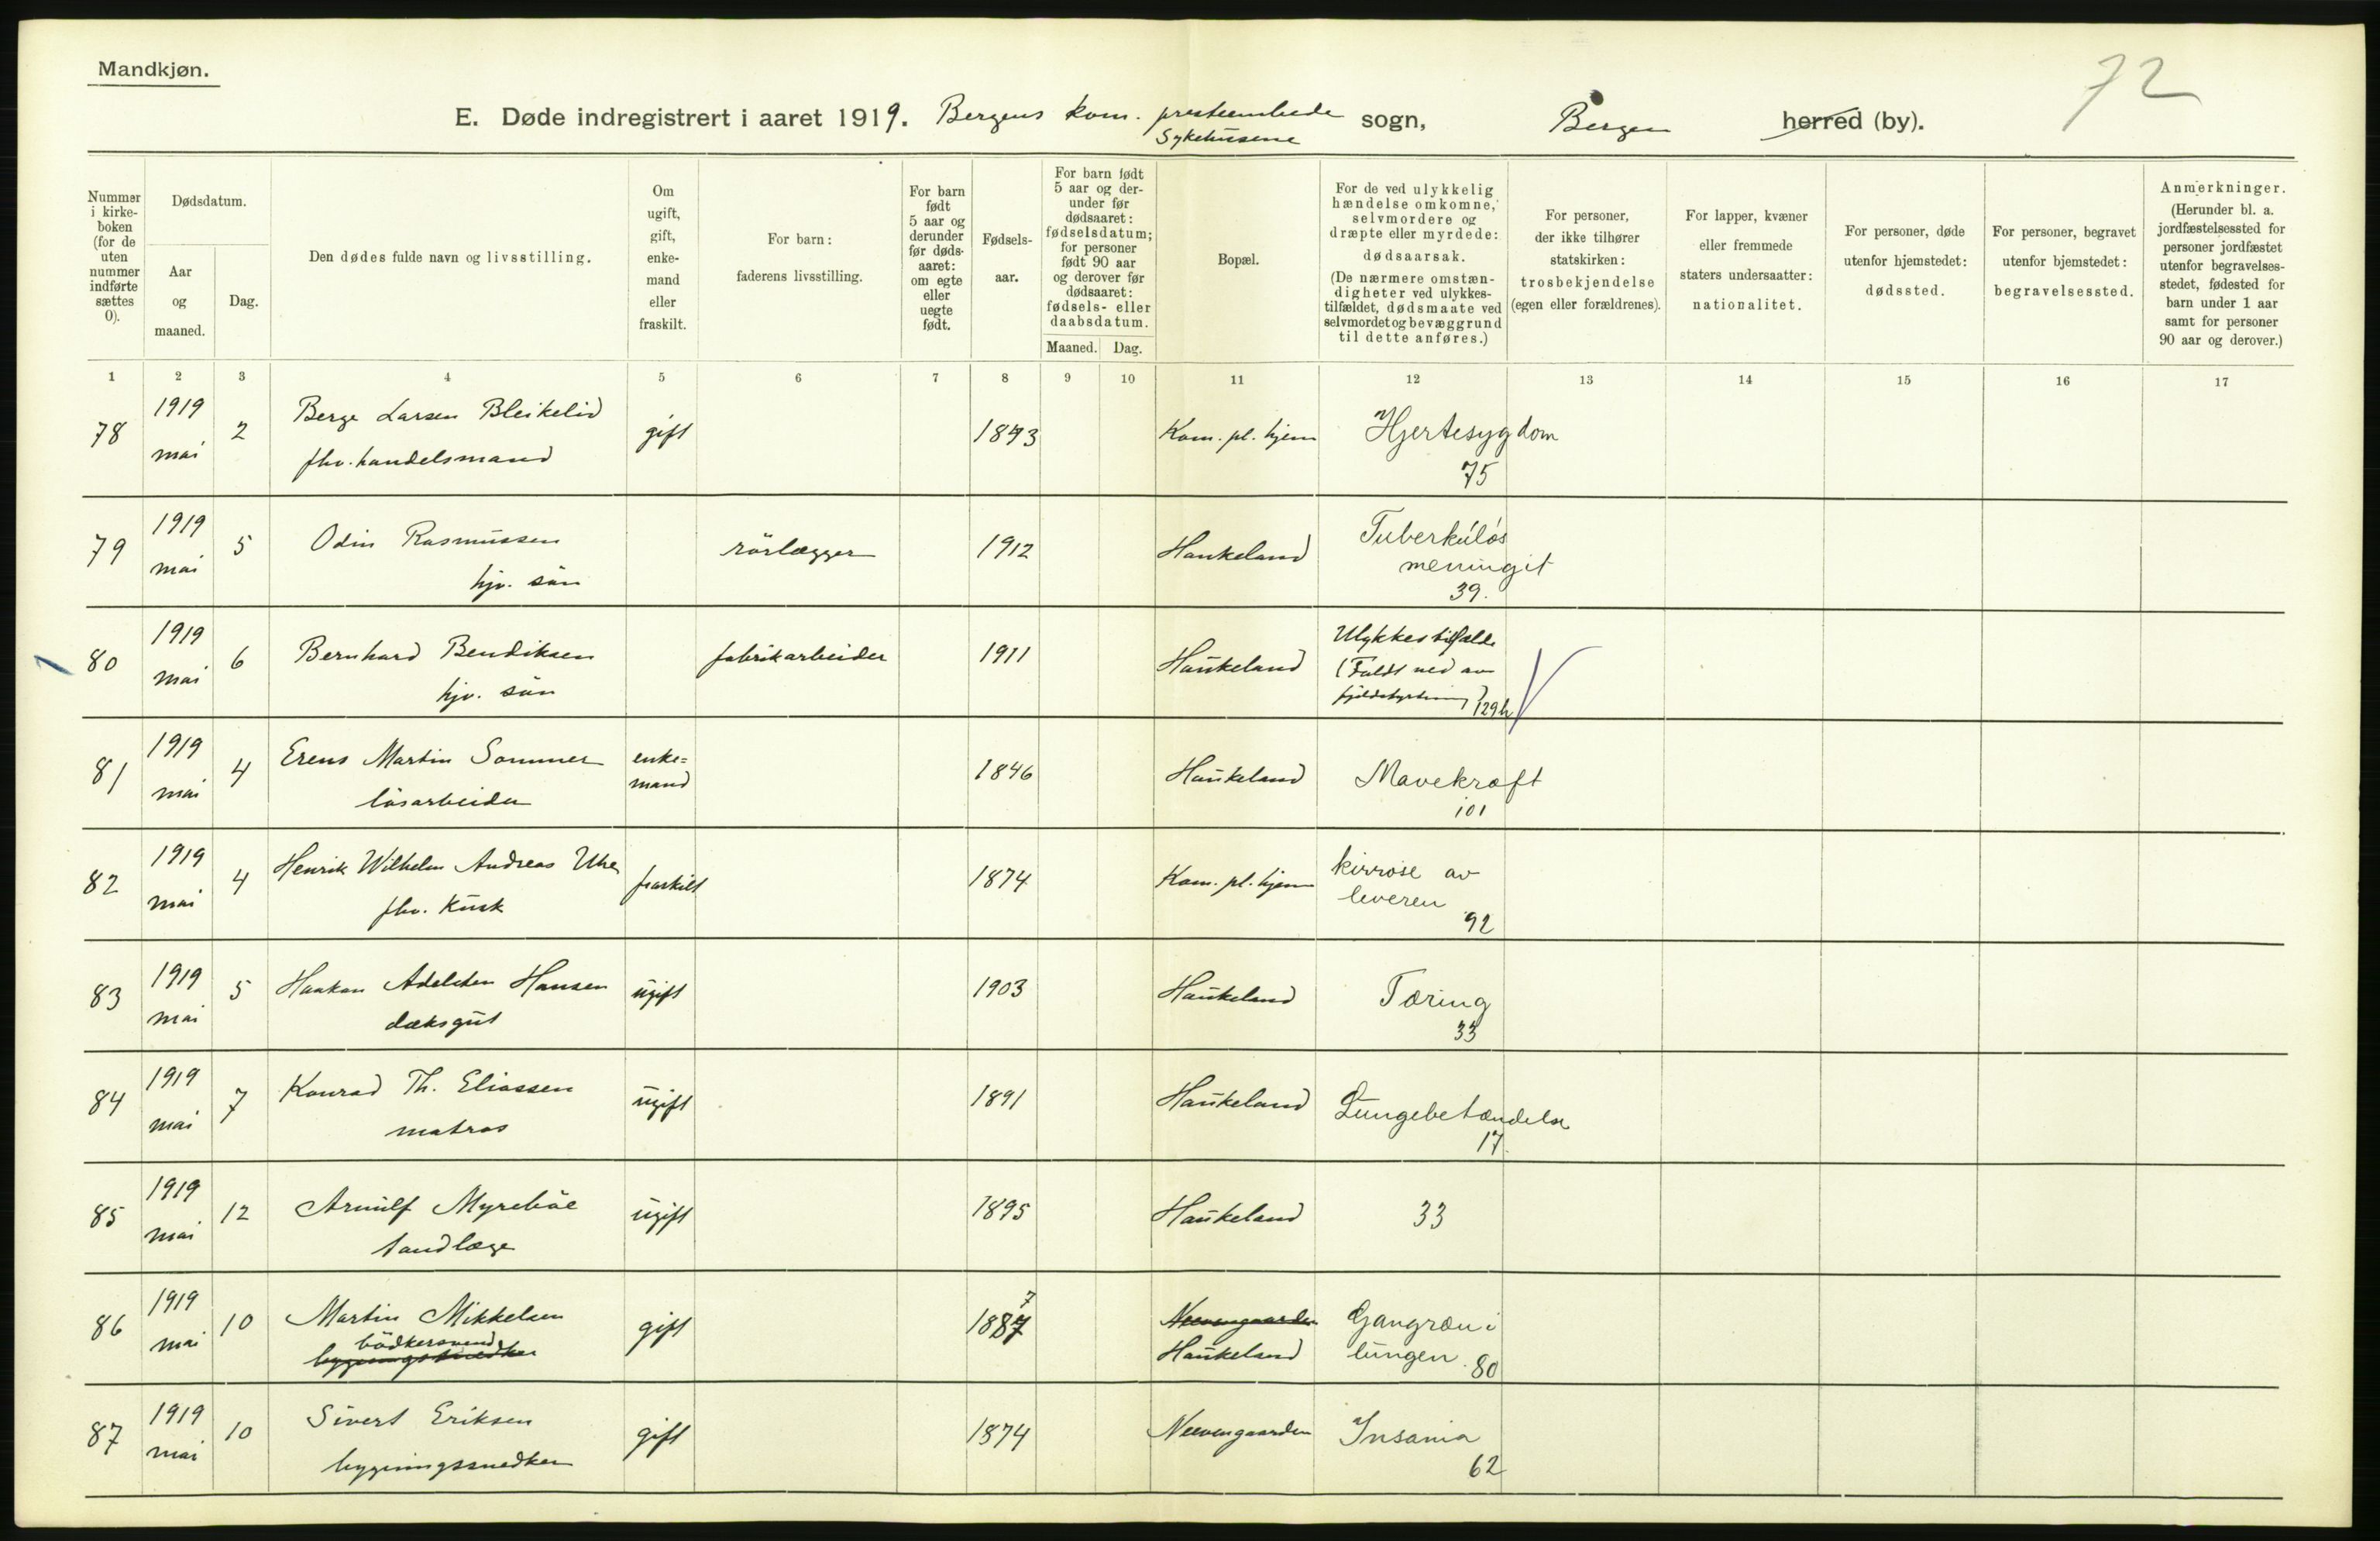 Mandkjøn.
72
E. Døde indregistrert i aaret 1919. Bergens kom. presteembede sogn, Bergen herred (by).
Sykehusene
Nummer i kirkeboken (for de uten nummer indførte sættes 0).
Dødsdatum.
Aar og maaned.
Dag.
Den dødes fulde navn og livsstilling.
Om ugift, gift, enkemand eller fraskilt.
For barn: faderens livsstilling.
For barn født 5 aar og derunder før dødsaaret: om egte eller uegte født.
Fødselsaar.
For barn født 5 aar og derunder før dødsaaret: fødselsdatum; for personer født 90 aar og derover før dødsaaret: fødsels- eller daabsdatum.
Maaned. Dag.
Bopæl.
For de ved ulykkelig hændelse omkomne, selvmordere og dræpte eller myrdede: dødsaarsak. (De nærmere omstændigheter ved ulykkestilfældet, dødsmaate ved selvmordet og bevæggrund til dette anføres.)
For personer, der ikke tilhører statskirken: trosbekjendelse (egen eller forældrenes).
For lapper, kvæner eller fremmede staters undersaatter: nationalitet.
For personer, døde utenfor hjemstedet: dødssted.
For personer, begravet utenfor hjemstedet: begravelsessted.
Anmerkninger. (Herunder bl. a. jordfæstelsessted for personer jordfæstet utenfor begravelsesstedet, fødested for barn under 1 aar samt for personer 90 aar og derover.)
1 2 3 4 5 6 7 8 9 10 11 12 13 14 15 16 17
78 1919 mai 2 Berge Larsen Bleikelid gift 1843 Kom. pl. hjem Hjertesygdom
fhv. handelsmand 75
79 1919 mai 5 Odin Rasmussen rörlægger 1912 Haukeland Tuberkuløs meningit
hjv. sön 39.
80 1919 mai 6 Bernhard Bendiksen fabrikarbeider 1911 Haukeland Ulykkestilfælde
hjv. sön (Faldt ned av fjeldstyrtning) 129h
81 1919 mai 4 Erens Martin Sommer enke=mand 1846 Haukeland Mavekræft
løsarbeider 101
82 1919 mai 4 Henrik Wilhelm Andreas fraskilt 1874 Kom. pl. hjem kirrose av leveren
fhv. Kusk 92
83 1919 mai 5 Haakon Adelsten Hansen ugift 1903 Haukeland Tæring
dæksgut 33
84 1919 mai 7 Konrad Th. Eliassen ugift 1891 Haukeland Lungebetændelse
matros 17.
85 1919 mai 12 Arnulf Myrebøe ugift 1895 Haukeland 33
tandlæge
86 1919 mai 10 Martin Mikkelsen gift 1887 7 Neevengaarden Gangræn i
bödkersvend bygningssnedker Haukeland lungen. 80
87 1919 mai 10 Sivert Eriksen gift 1874 Neevengaarden Insania
bygningssnedker 62